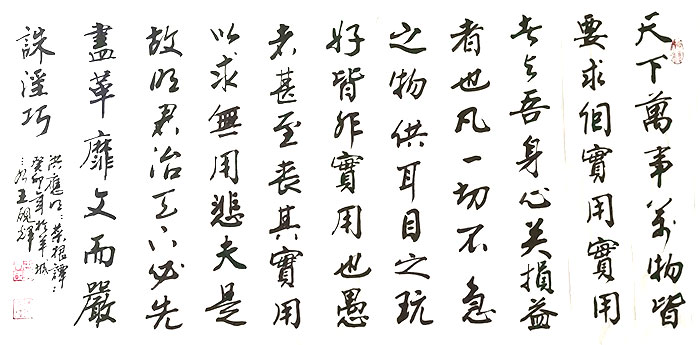 天下萬事萬物皆
要求個實用實用
者与吾身心关損益
者也凡一切不急
之物供耳目之玩
好皆非實用也愚
者甚至喪其實用
以求無用悲夫是
故明君治天下必先
盡革靡文而嚴
誅淫巧
洪應明菜根譚
癸卯年於羊城
王硯輝